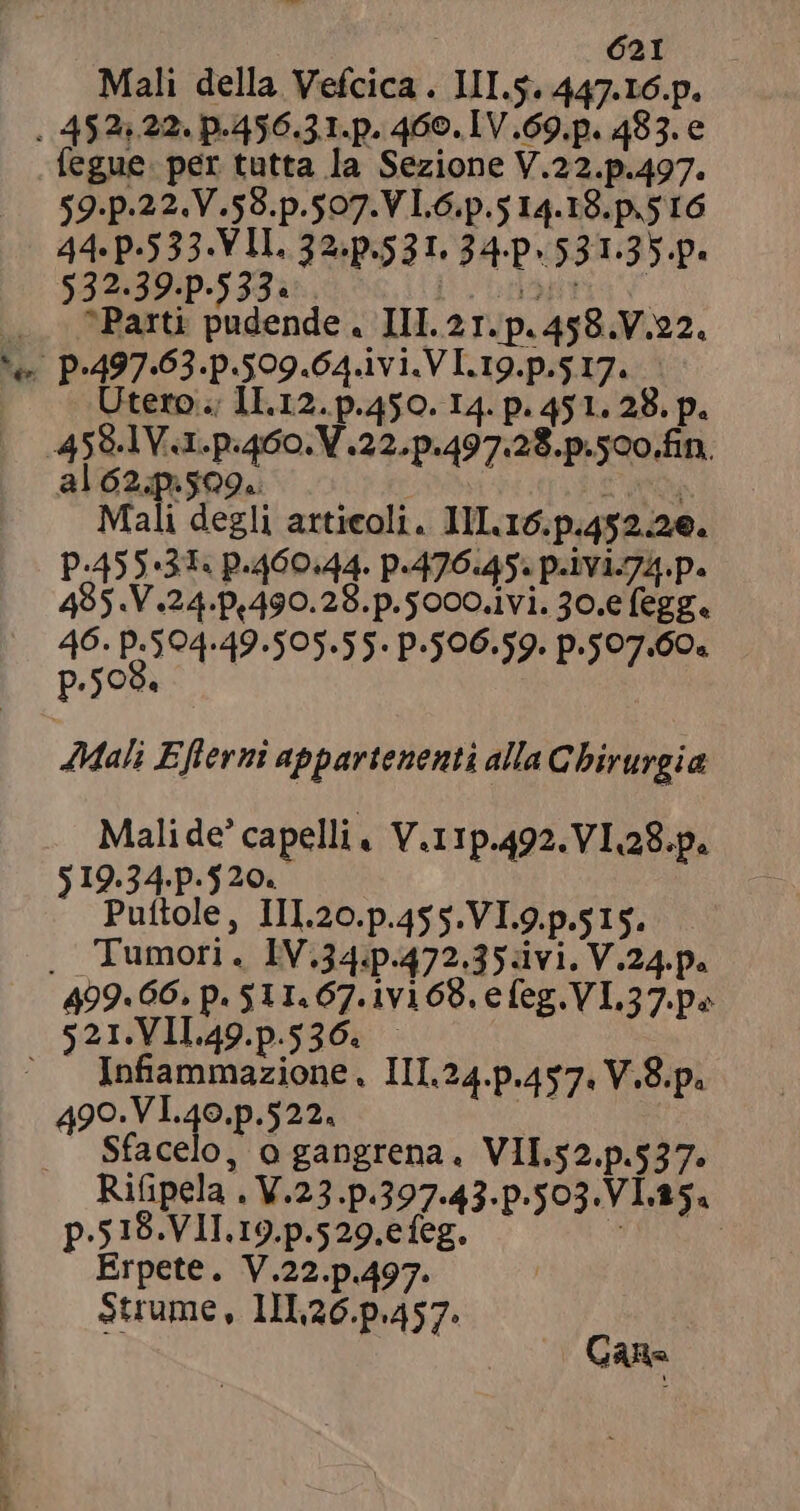 621
Mali della Veſcica. III.5. 447.16.p.
452.22. p.456.31.p. 460. IV.69.p. 483. e
ſegue per tutta la Sezione V.22.p.497.
59.p.22.V.58.p.507.VI.6.p.514.18.p.516
44.p.533.VII. 32.p.531. 34.p.531.35.p.
532.39.p.533.
Parti pudende. III.21.p.458.V.22.
p.497.63.p.509.64.ivi.VI.19.p.517.
Utero. II.12.p.450. 14. p.451. 28. p.
458.IV.1.p.460.V.22.p.497.28.p.500.fin.
al 62.p.509.
Mali degli articoli. III.16.p.452.20.
p.455.31. p.460.44. p.476.45. p.ivi.74.p.
485.V.24.p.490.28.p.5000.ivi. 30.e ſegg.
46. p.504.49.505.55. p.506.59. p.507.60.
p.508.
Mali Eſterni appartenenti alla Chirurgia
Mali de' capelli. V.11p.492.VI.28.p.
519.34.p.520.
Puſtole, III.20.p.455.VI.9.p.515.
Tumori. IV.34.p.472.35.ivi. V.24.p.
499.66. p. 511.67.ivi 68. e ſeg.VI.37.p.
521.VII.49.p.536.
Infiammazione. III.24.p.457. V.8.p.
490.VI.40.p.522.
Sfacelo, o gangrena. VII.52.p.537.
Riſipela. V.23.p.397.43.p.503.VI.25.
p.518.VII.19.p.529.e ſeg.
Erpete. V.22.p.497.
Strume, III.26.p.457.
Can-